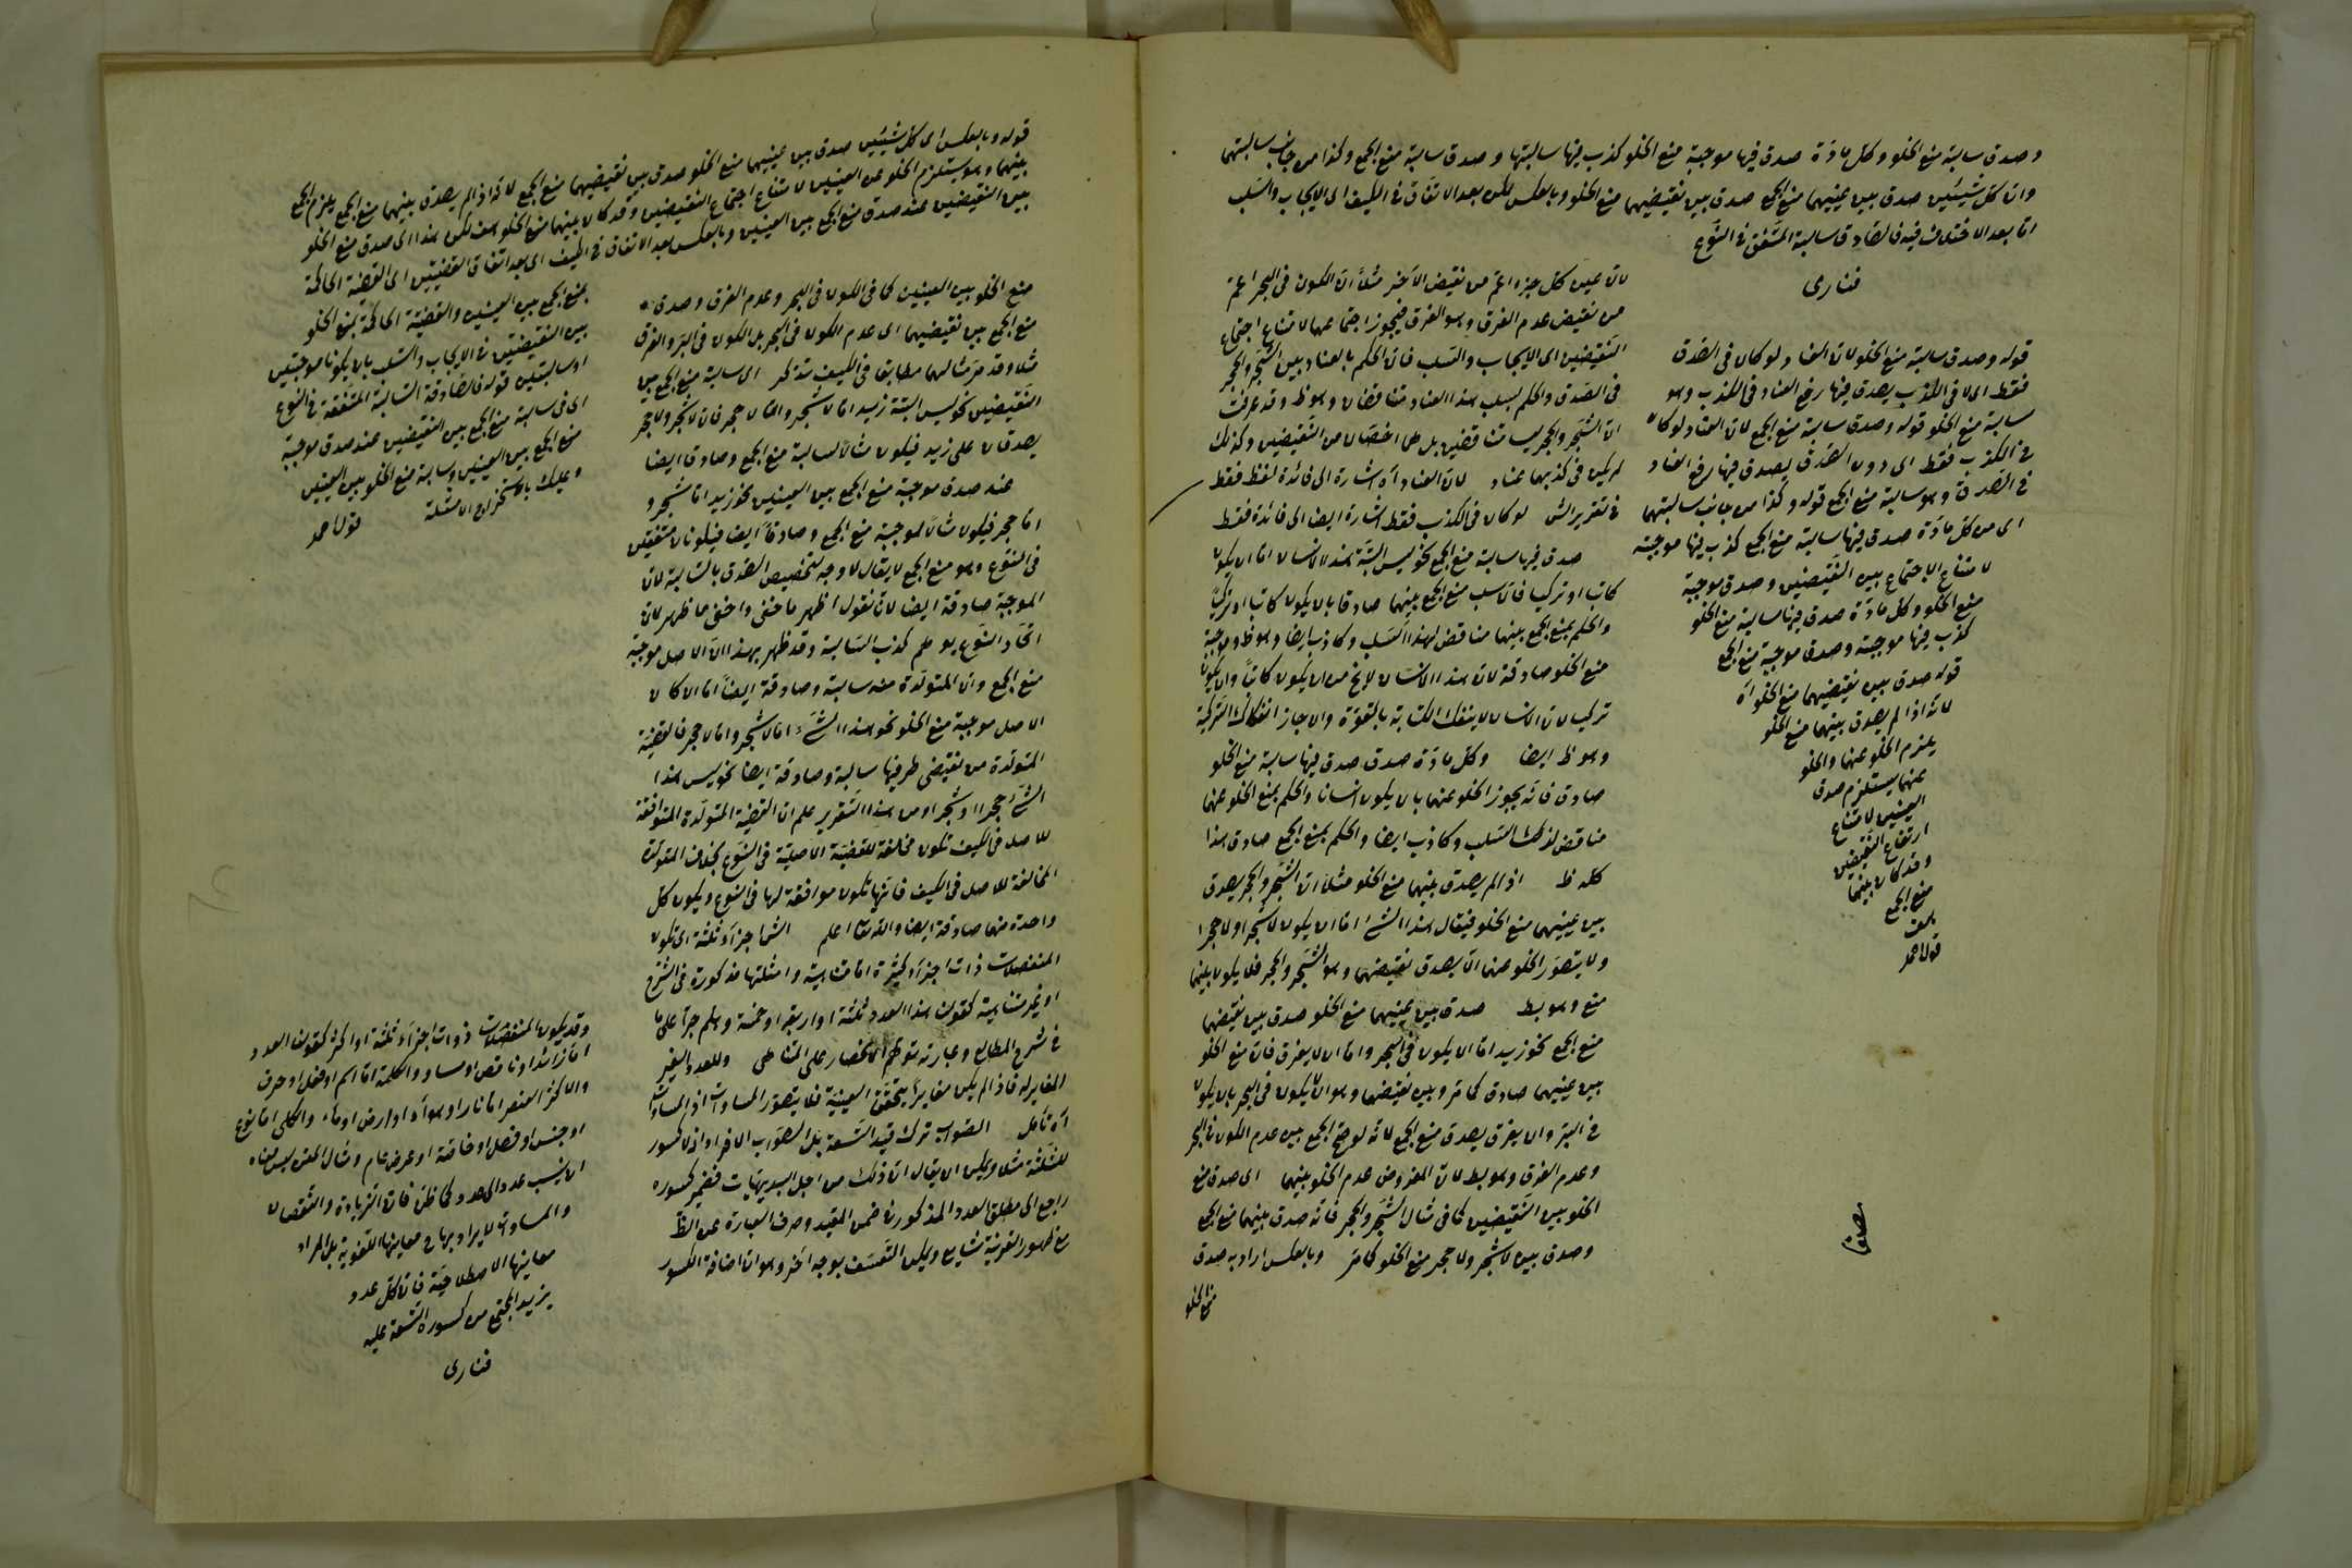 وصدق سالبة منع الخلو وكل مادّة صدق فيها موجبة منع الخلو كذب فيها سالبتها وصدق سالبة منع الجمع وكذا من جانب سالبتهما
وان كل شيئين صدق بين عينيهما منع الجمع صدق بين نقيضيهما منع الخلو وبالعكس لكن بعد الاتفاق في الكيف اى الايجاب والسلب
امّا بعد الاختلاف فيه فالصادق سالبة المتفق في النوع
فنارى
قوله وصدق سالبة منع الخلو لان العناد لو كان في الصدق
فقط اى لا في الكذب يصدق فيها رفع العناد في الكذب وهو
سالبة منع الخلو قوله وصدق سالبة منع الجمع لان العناد لو كان
في الكذب فقط اى دون الصدق يصدق فيها رفع العناد
في الصدق وهو سالبة منع الجمع قوله وكذا من جانب سالبتهما
اى من كل مادّة صدق فيها سالبة منع الجمع كذب فيها موجبته
لامتناع الاجتماع بين النقيضين وصدق موجبة
منع الخلو وكل مادّة صدق فيها سالبة منع الخلو
كذب فيها موجبته وصدق موجبة منع الجمع
قوله صدق بين نقيضيهما منع الخلو اه
لانه اذا لم يصدق بينهما منع الخلو
يلزم الخلو عنهما والخلو
عنهما يستلزم صدق
العينين لامتناع
ارتفاع النقيضين
وقد كان بينهما
منع الجمع
هف
قول احمد
لان عين كل جزء اعم من نقيض الآخر مثلاً ان الكون في البحر اعمّ
من نقيض عدم الغرق وهو الغرق فيجوز اجتماعهما لامتناع اجتماع
النقيضين اى الايجاب والسلب فان الحكم بالعناد بين الشجر والحجر
في الصدق والحكم بسلب هذا العناد متناقضان وهو ظ وقد عرفت
ان الشجر والحجر ليسا متناقضين بل هما اخصّان من النقيضين وكذلك
لم يكن في كذبهما عناد لان العناد آه اشارة الى فائدة لفظ فقط
في تقرير الش لو كان في الكذب فقط اشارة ايضا الى فائدة فقط
صدق فيها سالبة منع الجمع نحو ليس البتّة هذا الانسان امّا ان يكون
كاتبا او تركيا فان سلب منع الجمع بينهما صادق بان يكون كاتبا وتركيّا
والحكم بمنع الجمع بينهما مناقض لهذا السلب وكاذب ايضا وهو ظ وموجبة
منع الخلو صادقة لان هذا الانسان لا يخ من ان يكون كاتباً وان يكون
تركيا لان الانسان لا ينفك الكتابة بالقوّة وان جاز انفكاك التركية
وهو ظ ايضا وكل مادّة صدق صدق فيها سالبة منع الخلو
صادق فانه يجوز الخلو عنهما بان يكون انسانا والحكم بمنع الخلو عنهما
مناقض لذلك السلب وكاذب ايضا والحكم بمنع الجمع صادق هذا
كله ظ اذ الم يصدق بينهما منع الخلو مثلاً ان الشجر والحجر يصدق
بين عينيهما منع الخلو فيقال هذا الشئ امّا ان يكون لا شجر او لا حجرا
ولا يتصور الخلو عنهما الّا يصدق نقيضهما وهو الشجر والحجر فلا يكون بينهما
منع وهو بط صدق بين عينيهما منع الخلو صدق بين نقيضهما
منع الجمع نحو زيد امّا ان يكون في البحر وامّا ان لا يغرق فان منع الخلو
بين عينيهما صادق كما مرّ وبين نقيضهما وهو ان لا يكون في البحر بان يكون
في البرّ وان يغرق يصدق منع الجمع لانه لو صحّ الجمع بين عدم الكون في البحر
وعدم الغرق وهو بط لان المفروض عدم الخلو بينهما اى صدق منع
الخلو بين النقيضين كما في مثال الشجر والحجر فانه صدق بينهما منع الجمع
وصدق بين لا شجر ولا حجر منع الخلو كما مرّ وبالعكس اراد به صدق
منع الخلو
قوله وبالعكس اى كل شيئين صدق بين عينيهما منع الخلو صدق بين نقيضيهما منع الجمع لانه اذا لم يصدق بينهما منع الجمع يلزم الجمع
بينهما وهو يستلزم الخلو عن العينين لامتناع اجتماع النقيضين وقد كان بينهما منع الخلو هف لكن هذا اى صدق منع الخلو
بين النقيضين عند صدق منع الجمع بين العينين وبالعكس بعد الاتفاق في الكيف اى بعد اتفاق القضيتين اى القضية الحاكمة
بمنع الجمع بين العينين والقضيّة الحاكمة بمنع الخلو
بين النقيضين في الايجاب والسلب بان يكونا موجبتين
او سالبتين قوله فالصادقة السالبة المتفقة في النوع
اى في سالبة منع الجمع بين النقيضين عند صدق موجبة
منع الجمع بين العينين وسالبة منع الخلو بين العينين
وعليك باستخراج الامثلة قول احمد
منع الخلو بين العينين كما في الكون في البحر وعدم الغرق وصدق
منع الجمع بين نقيضيهما اى عدم الكون في البحر بل الكون في البرّ والغرق
مثلا وقد مرّ مثالهما مطابق في الكيف تذكر اى سالبة منع الجمع بين
النقيضين نحو ليس البتّة زيد امّا لا شجر وامّا لا حجر فان لا شجر ولا حجر
يصدقان على زيد فيكون مثالاً لسالبة منع الجمع وصادق ايضا
عند صدق موجبة منع الجمع بين العينين نحو زيد امّا شجر و
امّا حجر فيكون مثالاً لموجبة منع الجمع وصادقاً ايضا فيكونان متفقين
في النوع وهو منع الجمع لا يقال لا وجه لتخصيص الصدق بالسالبة لان
الموجبة صادقة ايضا لان نقول اظهر ما خفى واخفى ما ظهر لان
اتحاد النوع يوهم كذب السالبة وقد ظهر بهذا ان الاصل موجبة
منع الجمع وان المتولّدة منه سالبة وصادقة ايضاً امّا ان كان
الاصل موجبة منع الخلو نحو هذا الشئ امّا لا شجر وامّا لا حجر فالقضيّة
المتولّدة من نقيضى طرفيها سالبة وصادقة ايضا نحو ليس هذا
الشئ حجرا او شجرا ومن هذا التقرير علم ان القضية المتولّدة المتوافقة
للاصل في الكيف تكون مخالفة للقضيّة الاصليّة في النوع بخلاف المتولّدة
المخالفة للاصل في الكيف فانها تكون موافقة لها في النوع ويكون كل
واحدة منهما صادقة ايضا والله تعا اعلم اجزآء ثلثة اى تكون
المنفصلات ذات اجزآء كثيرة امّا متناهية وامثلتها مذكورة في الشرح
او غير متناهية كقولنا هذا العدد ثلثة او اربعة او خمسة وهلم جرّا على ما
في شرح المطالع وعبارته توهّم الانحصار على المتناهى وللعدد الغير
المغاير له فاذا لم يكن مغايراً يتحقق العينية فلا يتصور المساوات اذ المساوات
آه تأمل الصواب ترك قيد التسعة بل الصواب الافراد اذ لا كسور
للثلثة مثلا ويمكن ان يقال ان ذلك من اجل البديهيّات فضمير كسوره
راجع الى مطلق العدد المذكور في ضمن المقيد وصرف العبارة عن الظّ
مع ظهور القرينة شايع ويمكن التعسّف بوجه آخر وهو ان اضافة الكسور
وقد يكون المنفصلات ذوات اجزآء ثلثة او اكثر كقولنا العدد
امّا زائد او ناقص او مساو والكلمة امّا اسم او فعل او حرف
والاكثر العنصر امّا نار او هوآء او ارض او ماء والكلى امّا نوع
او جنس او فصل او خاصّة او عرض عام ومثال المتن ليس معناه
ان ينسب عدد الى عدد كما ظن فان الزيادة والنقصان
والمساواة لا يراد بها ح معانيها اللغوية بل المراد
معانيها الاصطلاحيّة فان كل عدد
يزيد المجتمع من كسوره التسعة عليه
فنارى